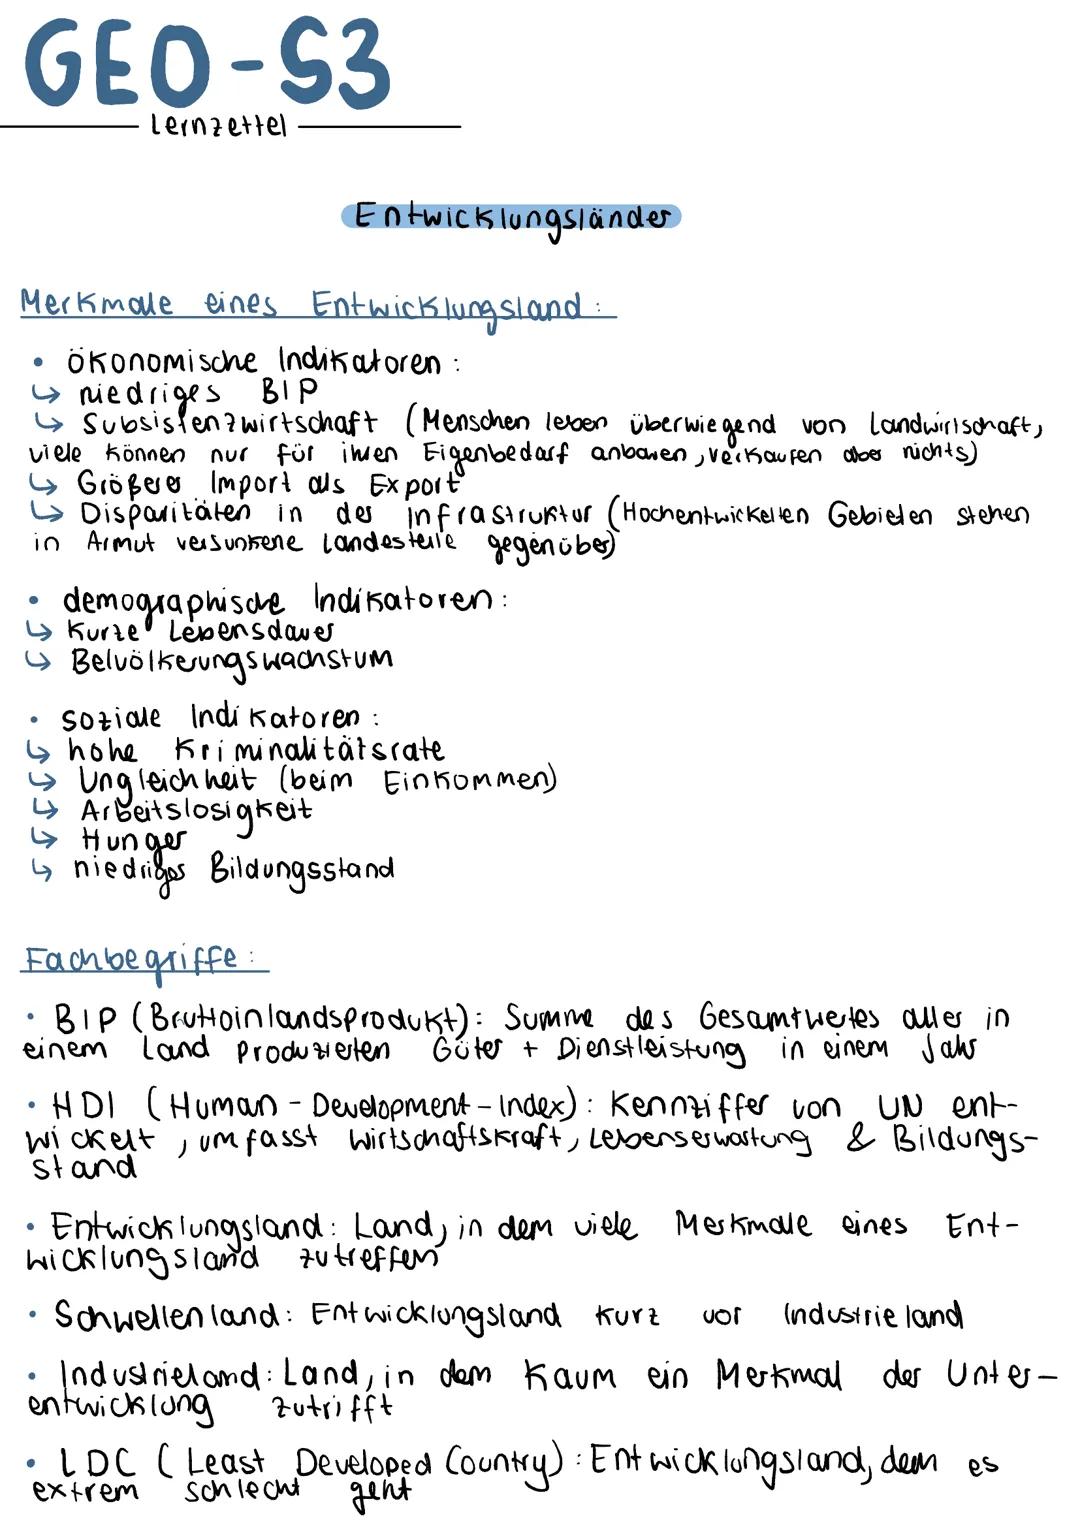 GEO-S3
Lernzettel
Entwicklungsländer
Merkmale eines Entwicklungsland:
• ökonomische Indikatoren:
↳ niedriges BIP
↳ Subsistenzwirtschaft (Menschen leben überwiegend von Landwirtschaft,
viele können nur für ihren Eigenbedarf anbauen, verkaufen aber nichts)
↳ Größerer Import als Export
↳ Disparitäten in der Infrastruktur (Hochentwickelten Gebieten stehen
in Armut versunkene Landesteile gegenüber)
• demographische Indikatoren:
↳ Kurze Lebensdauer
↳ Belvölkerungswachstum
• soziale Indikatoren:
↳ hohe Kriminalitätsrate
↳ Ungleichheit (beim Einkommen)
↳ Arbeitslosigkeit
↳ Hunger
↳ niedriges Bildungsstand
Fachbegriffe:
• BIP (Bruttoinlandsprodukt): Summe des Gesamtwertes aller in
einem Land produzierten Güter + Dienstleistung in einem Jahr
• HDI (Human-Development-Index): Kennziffer von UN ent-
wickelt, umfasst Wirtschaftskraft, Lebenserwartung & Bildungs-
stand
• Entwicklungsland: Land, in dem viele Merkmale eines Ent-
wicklungsland zutreffen
• Schwellenland: Entwicklungsland kurz vor Industrieland
• Industrieland: Land, in dem kaum ein Merkmal der Unter-
entwicklung zutrifft
• LDC (Least Developed Country): Entwicklungsland, dem es
extrem schlecht geht